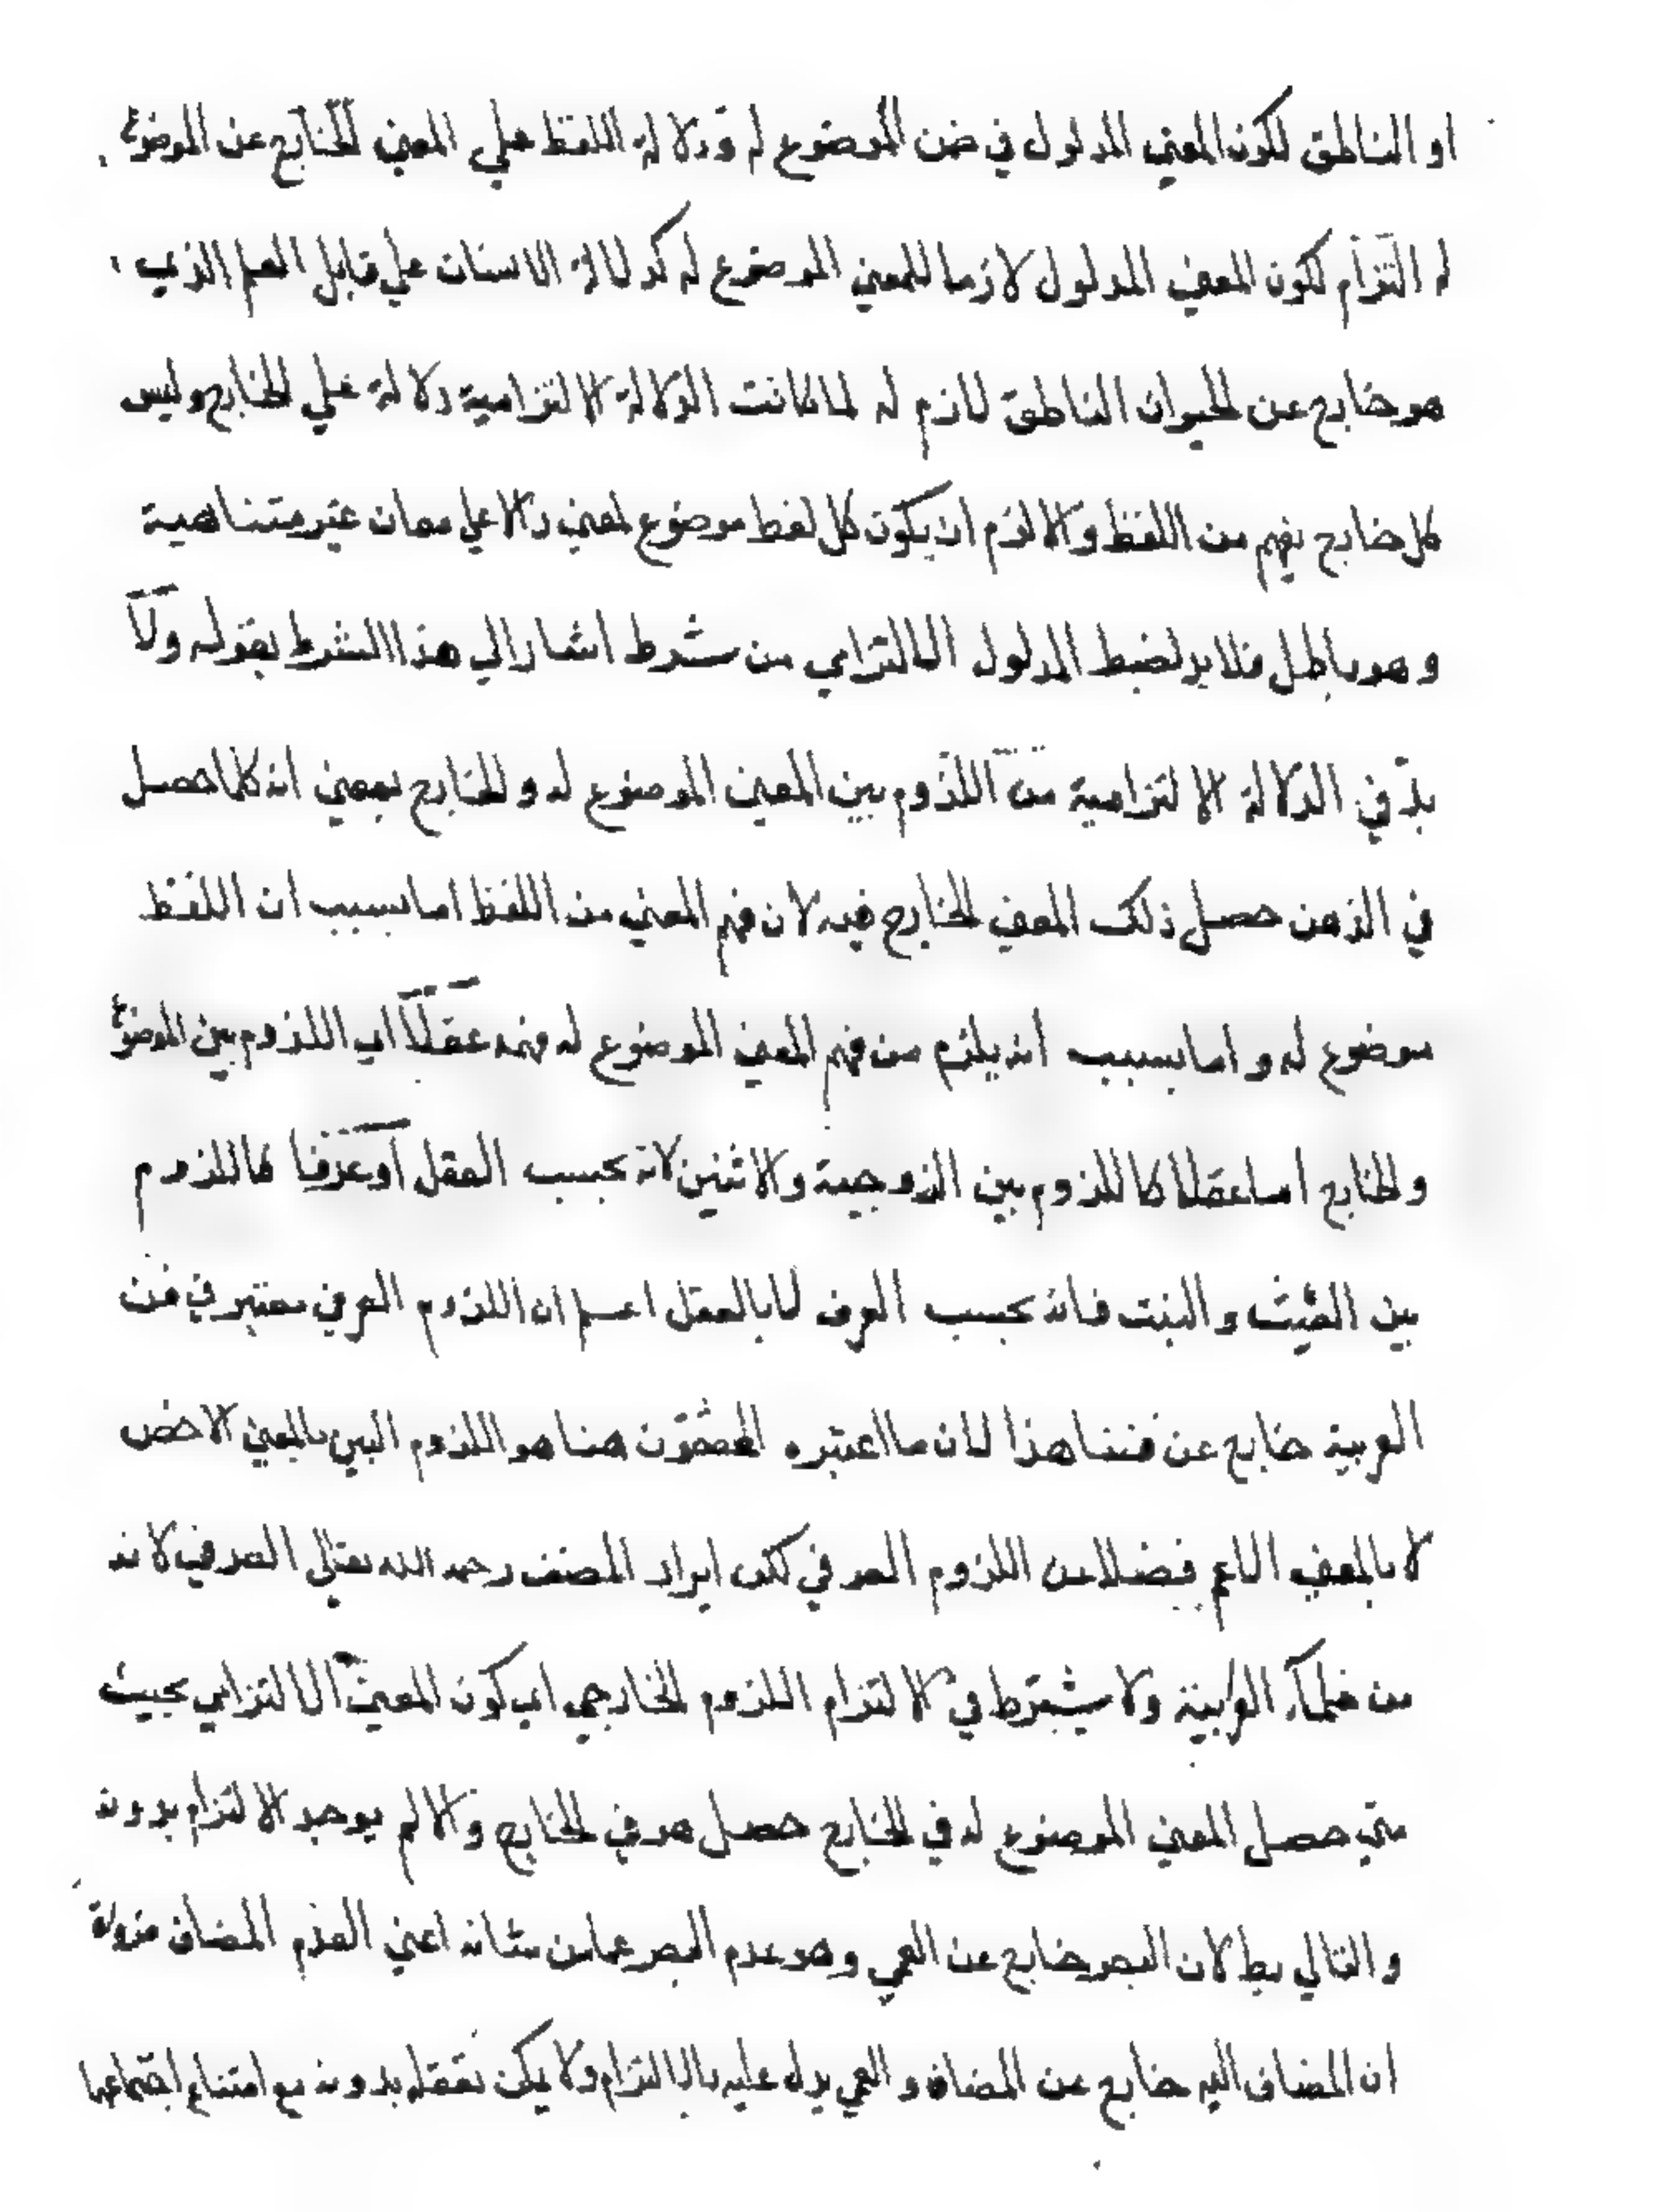 او الناطق لكون المعني المدلول في ضمن الموضوع له ودلالة اللفظ علي المعني الخارج عن الموضوع
له التزام لكون المعني المدلول لازما للمعني الموضوع له كدلالة الانسان علي قابل العلم الذي
هو خارج عن الحيوان الناطق لازم له لما كانت الدلالة الالتزامية دلالة علي الخارج وليس
كل خارج يفهم من اللفظ والا لزم ان يكون كل لفظ موضوع لمعني دالا علي معان غير متناهية
وهو باطل فلا بد لضبط المدلول الالتزامي من شرط اشار الي هذا الشرط بقوله ولا
بد في الدلالة الالتزامية من اللزوم بين المعني الموضوع له والخارج بمعني انه كلما حصل
في الذهن حصل ذلك المعني الخارج فيه لان فهم المعني من اللفظ اما بسبب ان اللفظ
موضوع له واما بسبب انه يلزم من فهم المعني الموضوع له فهمه عقلا اي اللزوم بين الموضوع
والخارج اما عقلا كاللزوم بين الزوجية والاثنين لانه بحسب العقل او عرفا كاللزوم
بين الغيث والنبت فانه بحسب العرف لا بالعقل اعلم ان اللزوم العرفي معتبر في فن
العربية خارج عن فننا هذا لان ما اعتبره المحققون هنا هو اللزوم البين بالمعني الاخص
لا بالمعني الاعم فضلا عن اللزوم العرفي لكن ايراد المصنف رحمه الله تعالي العرفي لانه
من علماء العربية ولا يشترط في الالتزام اللزوم الخارجي اي كون المعني الالتزامي بحيث
متي حصل المعني الموضوع له في الخارج حصل هو في الخارج والا لم يوجد الالتزام بدونه
والتالي بط لان البصر خارج عن العمي وهو عدم البصر عما من شانه اعني العدم المضاف ضرورة
ان المضاف اليه خارج عن المضاف والعمي يدل عليه بالالتزام ولا يمكن تعقله بدونه مع امتناع اجتماعهما